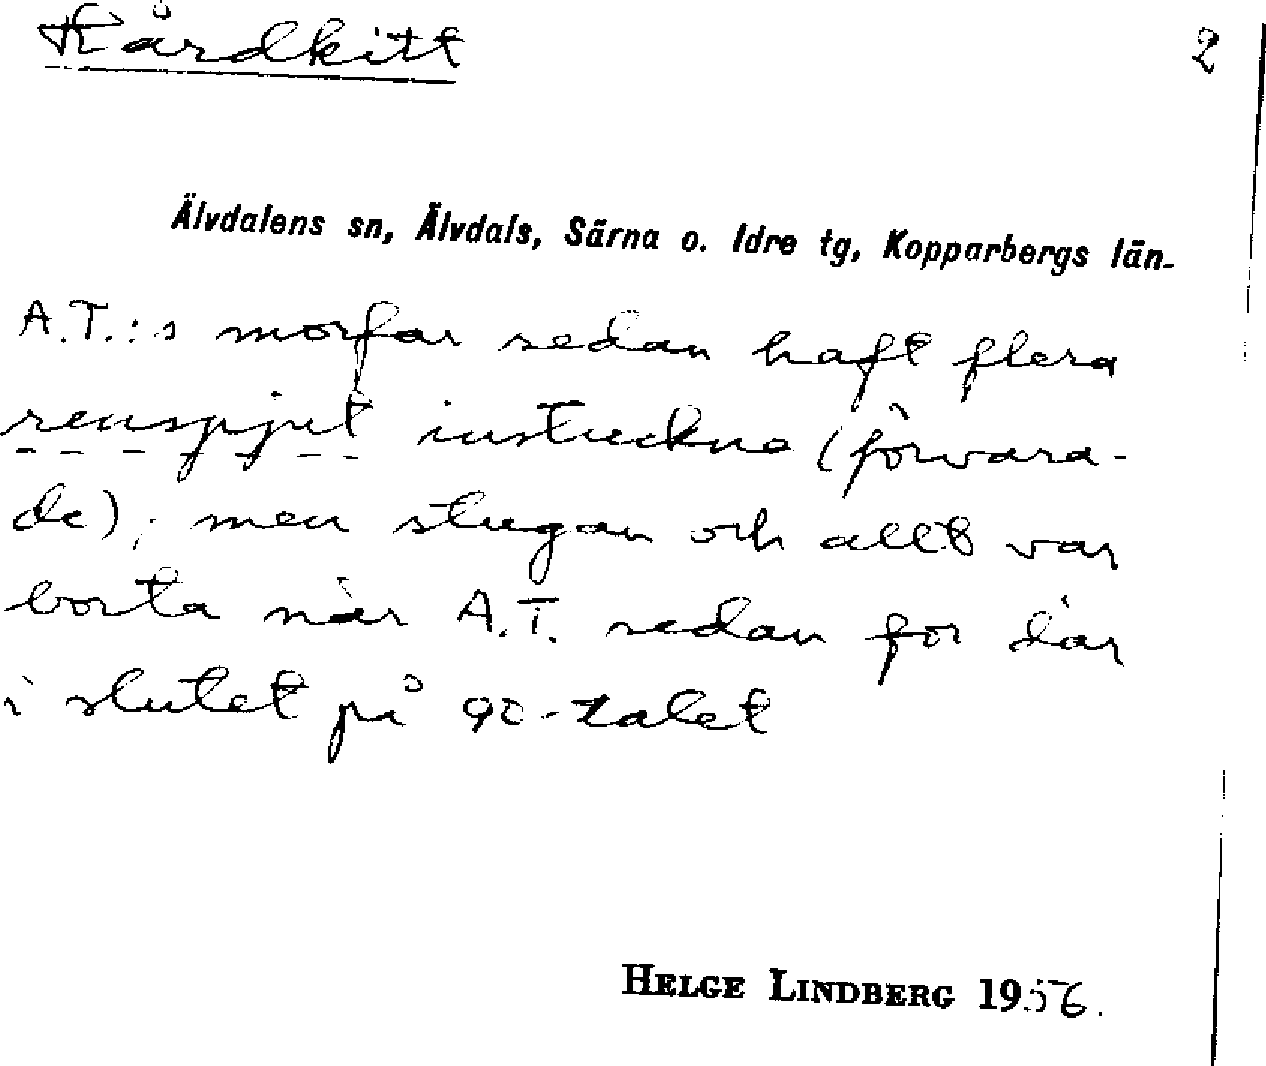 Kårdkitt 2
Älvdalens sn, Älvdals, Särna o. Idre tg, Kopparbergs län.
A.T.:s morfar sedan haft flera
renspjut instuckna (förvara-
de); men stugan och allt var
borta när A.T. sedan for där
i slutet på 90-talet
HELGE LINDBERG 1956.